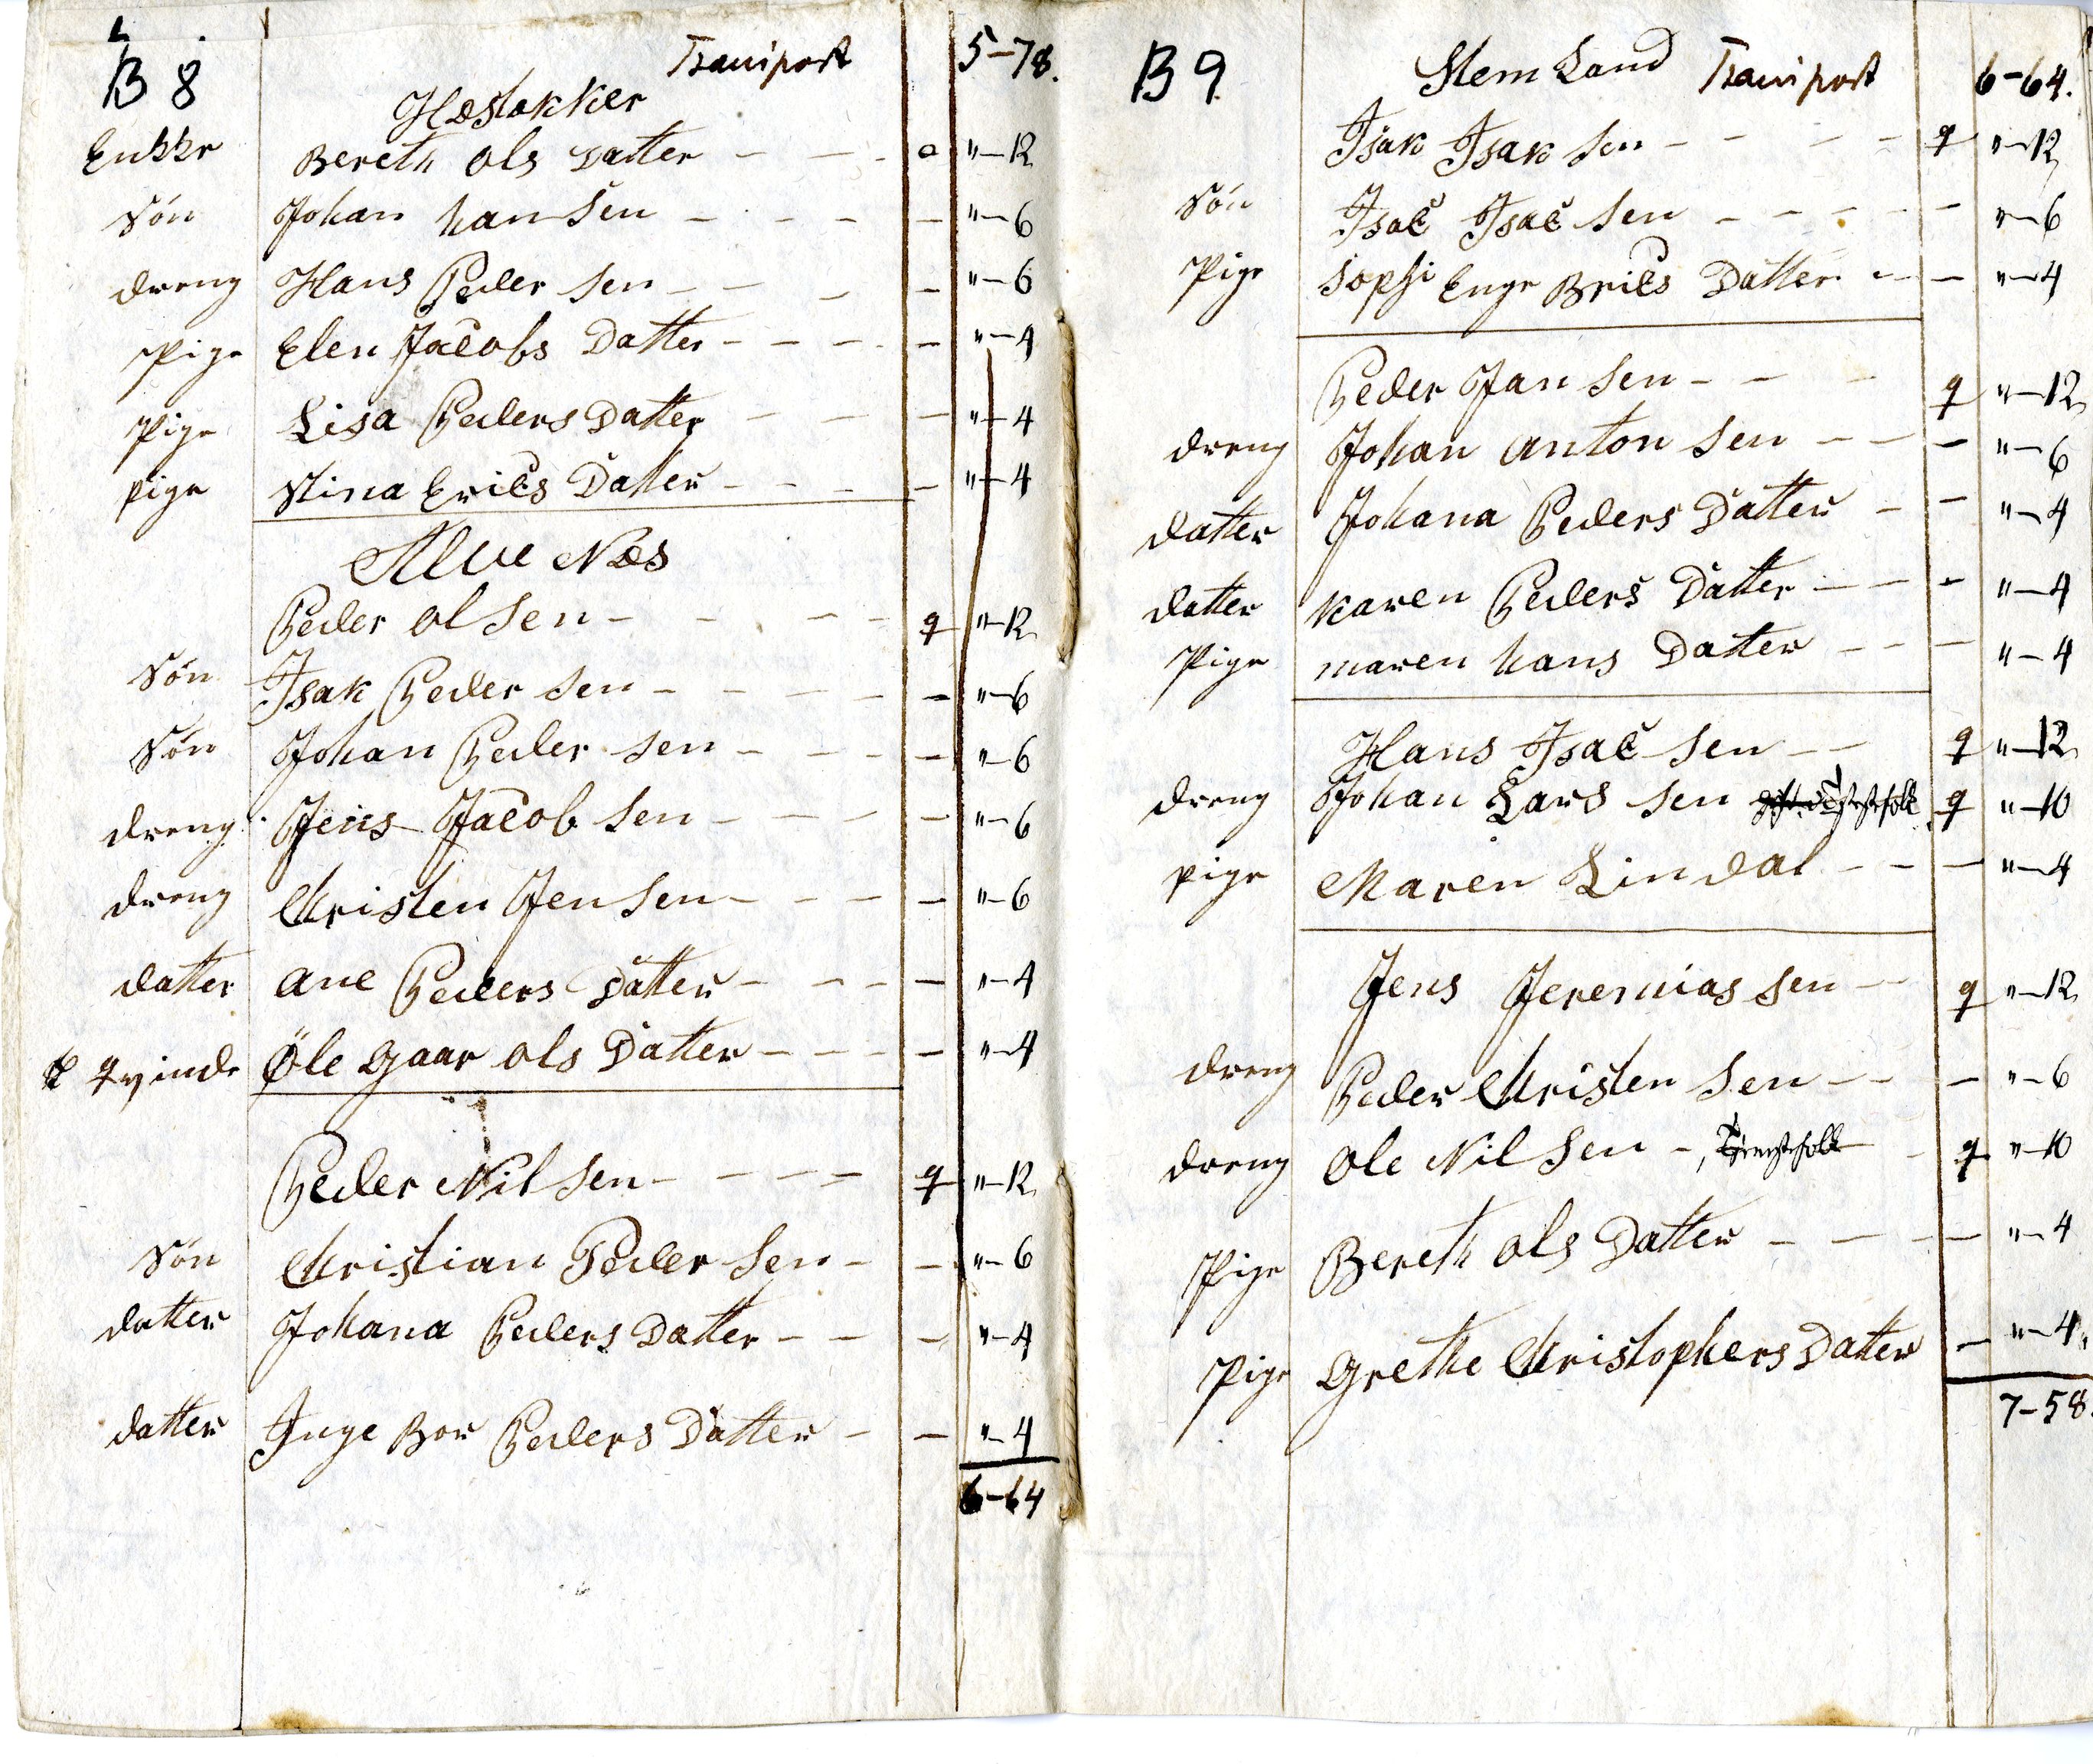 B 8 Transport 5-78.
Hæstakker
Enkke Bereth Ols Datter - - - o "-12
Søn Johan hansen - - - - "-6
dreng Hans Peder sen - - - - "-6
Pige Elen Jacobs Datter - - - - "-4
Pige Lisa Peders Datter - - - "-4
pige Stina Erics Datter - - - - "-4
Alve Næs
Peder Olsen - - - - q "-12
Søn Isak Peder sen - - - - - "-6
Søn Johan Peder sen - - - - "-6
dreng Jens Jacob sen - - - - "-6
dreng Christen Jensen - - - - "-6
datter Ane Peders Datter - - - - "-4
qvinde Øle gaar Ols Datter - - - - "-4
Peder Nilsen - - - - q "-12
Søn Christian Peder sen - - "-6
datter Johana Peders Datter - - - "-4
datter Inge Bor Peders Datter - - "-4
6-64
B 9 Stem Land Transport 6-64.
Isak Isak sen - - - - q "-12
Søn Isac Isac sen - - - - - "-6
Pige Sophi Enge Brics Datter - - "-4
Peder Jan sen - - - q "-12
dreng Johan Anton sen - - - "-6
datter Johana Peders Datter - - "-4
datter Karen Peders Datter - - - "-4
Pige maren hans Datter - - - "-4
Hans Isac sen - - q "-12
dreng Johan Lars sen q "-10
pige Maren Lindal - - - "-4
Jens Jeremias sen - - q "-12
dreng Peder Christen sen - - - "-6
dreng Ole Nilsen -, Tienestfolk - q "-10
Pige Bereth Ols Datter - - - - "-4
Pige Grethe Christophers Datter - "-4.
7-58.